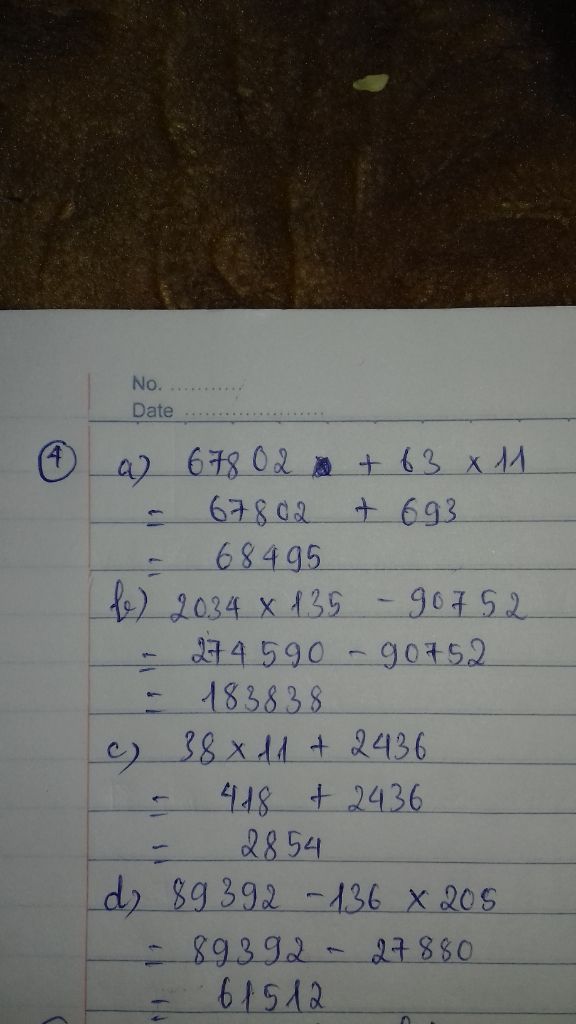 No. ...........
Date .....................
4 a) 67802 + 63 x 11
= 67802 + 693
= 68495
b) 2034 x 135 - 90752
= 274590 - 90752
= 183838
c) 38 x 11 + 2436
= 418 + 2436
= 2854
d) 89392 - 136 x 205
= 89392 - 27880
= 61512